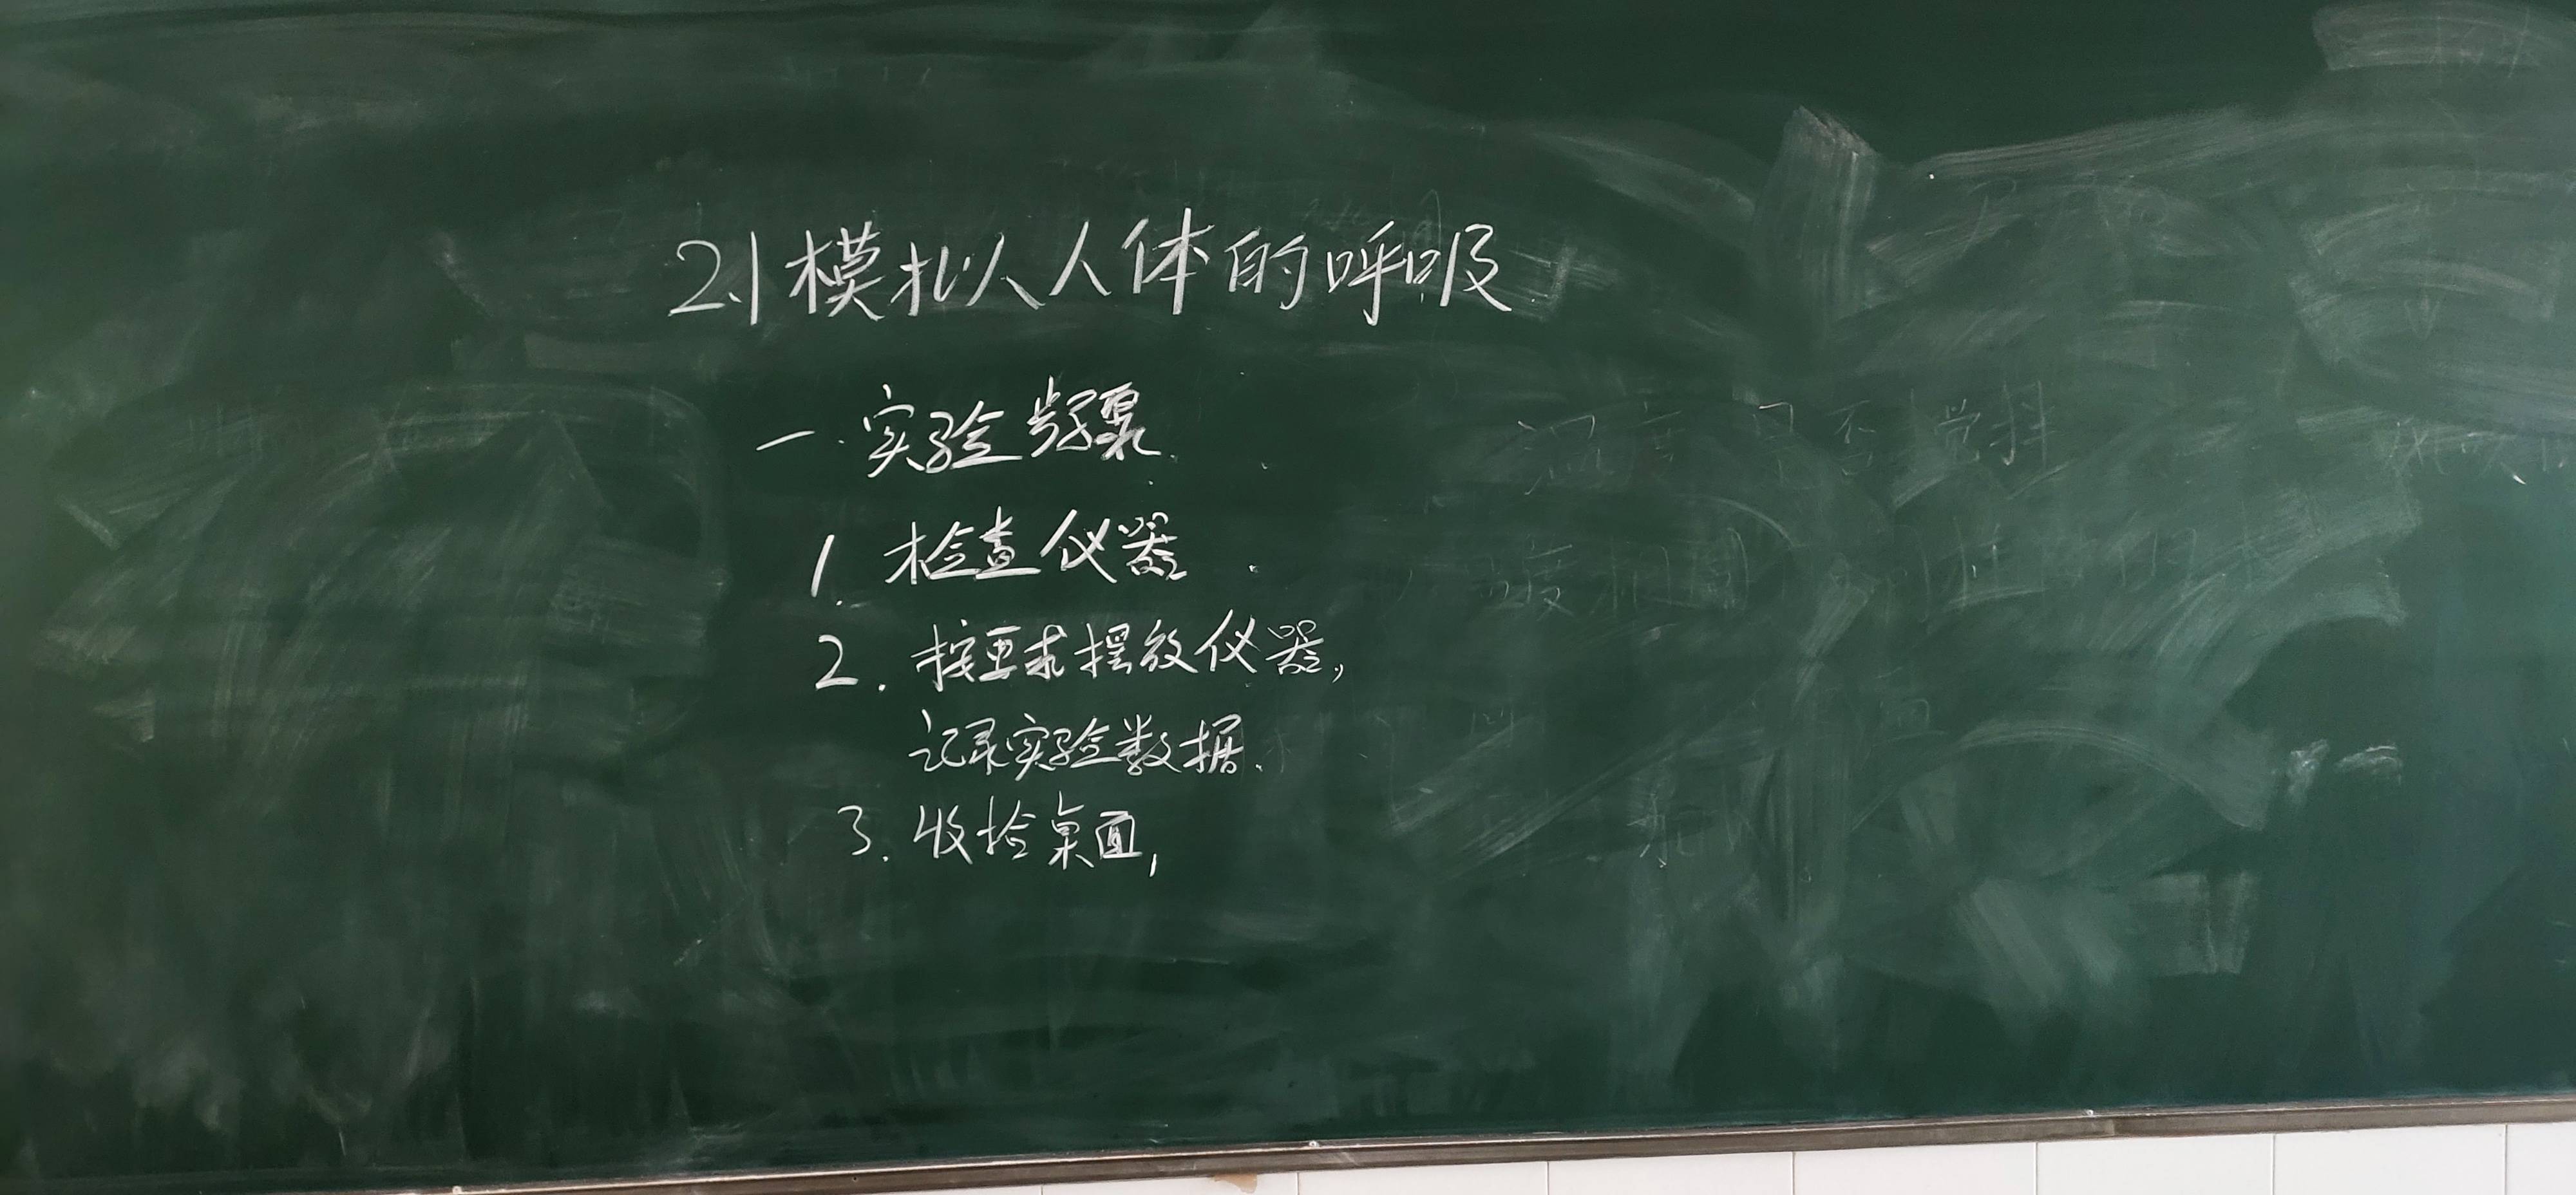 2.1 模拟人人体的呼吸
一.实验步骤.
1. 检查仪器.
2. 按要求摆放仪器,
记录实验数据.
3. 收捡桌面,